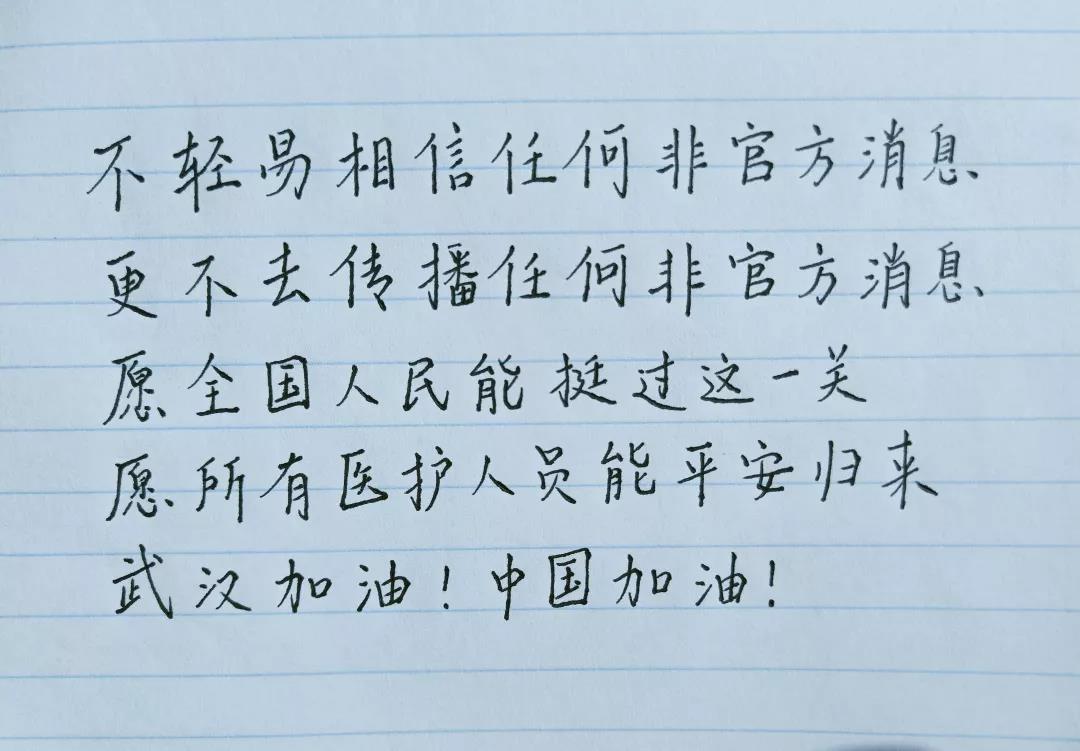 不轻易相信任何非官方消息
更不去传播任何非官方消息
愿全国人民能挺过这一关
愿所有医护人员能平安归来
武汉加油！中国加油！